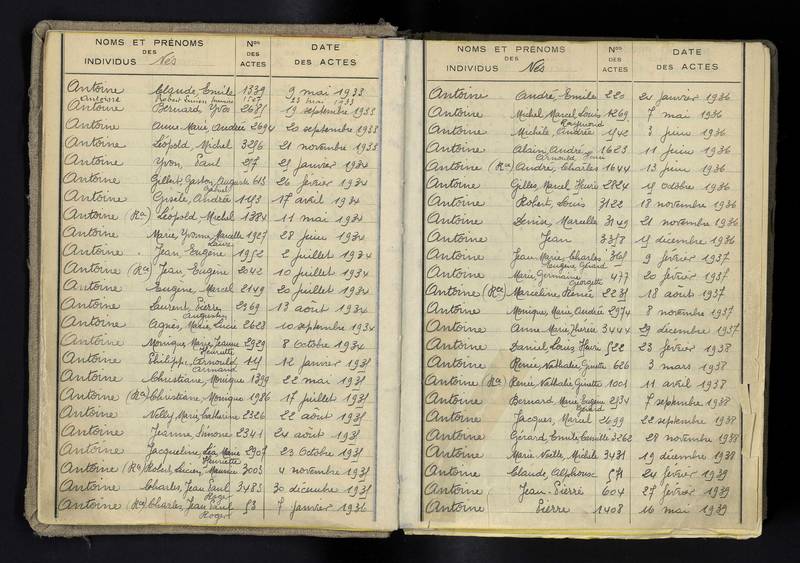 NOMS ET PRÉNOMS
DES
INDIVIDUS Nés
Nos
DES
ACTES
DATE
DES ACTES
Antoine Claude, Emile 1339 9 mai 1933
Antoine Robert Lucien Maurice 1507 23 mai 1933
Antoine Bernard Yves 2635 19 septembre 1933
Antoine Anne Marie, Andrée 2694 20 septembre 1933
Antoine Léopold, Michel 3256 21 novembre 1933
Antoine Yvon, Paul 257 25 janvier 1934
Antoine Gilbert, Gaston, Auguste 613 26 février 1934
Gabriel
Antoine Gisèle, Andrée 1143 17 avril 1934
Antoine (Ra) Léopold, Michel 1384 11 mai 1934
Antoine Marie, Yvonne, Marcelle 1927 28 juin 1934
Laure
Antoine Jean, Eugène 1952 2 juillet 1934
Antoine (Ra) Jean, Eugène 2042 10 juillet 1934
Antoine Eugène, Marcel 2149 20 juillet 1934
Antoine Laurent, Pierre 2369 13 août 1934
Augustin
Antoine Agnès, Marie, Lucie 2623 10 septembre 1934
Antoine Monique, Marie, Jeanne 2929 8 octobre 1934
Henriette
Antoine Philippe, Arnould 115 12 janvier 1935
Armand
Antoine Christiane, Monique 1399 22 mai 1935
Antoine (Ra) Christiane, Monique 1986 17 juillet 1935
Antoine Nelly, Marie, Catherine 2326 22 août 1935
Antoine Jeanne, Simone 2341 24 août 1935
Antoine Jacqueline, Léa, Marie 2907 23 Octobre 1935
Henriette
Antoine (Ra) Robert, Lucien, Maurice 3003 4 novembre 1935
Antoine Charles, Jean Paul 3485 30 décembre 1935
Roger
Antoine (Ra) Charles, Jean Paul 53 7 janvier 1936
Roger
NOMS ET PRÉNOMS
DES
INDIVIDUS Nés
Nos
DES
ACTES
DATE
DES ACTES
Antoine André, Emile 220 24 janvier 1936
Antoine Michel Marcel Louis 1269 7 mai 1936
Raymond
Antoine Michèle, Andrée 1542 3 juin 1936
Antoine Alain, André 1623 11 juin 1936
Arnould Henri
Antoine (Ra) André, Charles 1644 13 juin 1936
Antoine Gilles, Marcel Henri 2824 15 octobre 1936
Antoine Robert, Louis 3122 18 novembre 1936
Antoine Denise, Marcelle 3149 21 novembre 1936
Antoine Jean 3358 15 décembre 1936
Antoine Jean Marie, Charles 365 9 février 1937
Eugène Gérard
Antoine Marie, Germaine 477 20 février 1937
Georgette
Antoine (Ra) Marceline, Renée 2235 18 août 1937
Antoine Monique, Marie, Andrée 2974 8 novembre 1937
Antoine Anne Marie, Thérèse 3444 29 décembre 1937
Antoine Daniel, Louis Henri 522 23 février 1938
Antoine Renée, Nathalie, Ginette 626 3 mars 1938
Antoine (Ra) Renée, Nathalie, Ginette 1001 11 avril 1938
Antoine Bernard, Marie, Eugène 2534 7 septembre 1938
Gérard
Antoine Jacques, Marcel 2699 22 septembre 1938
Antoine Gérard, Emile, Camille 3262 28 novembre 1938
Antoine Marie Noëlle, Michèle 3431 19 décembre 1938
Antoine Claude, Alphonse 571 24 février 1939
Antoine Jean-Pierre 604 27 février 1939
Antoine Pierre 1408 16 mai 1939